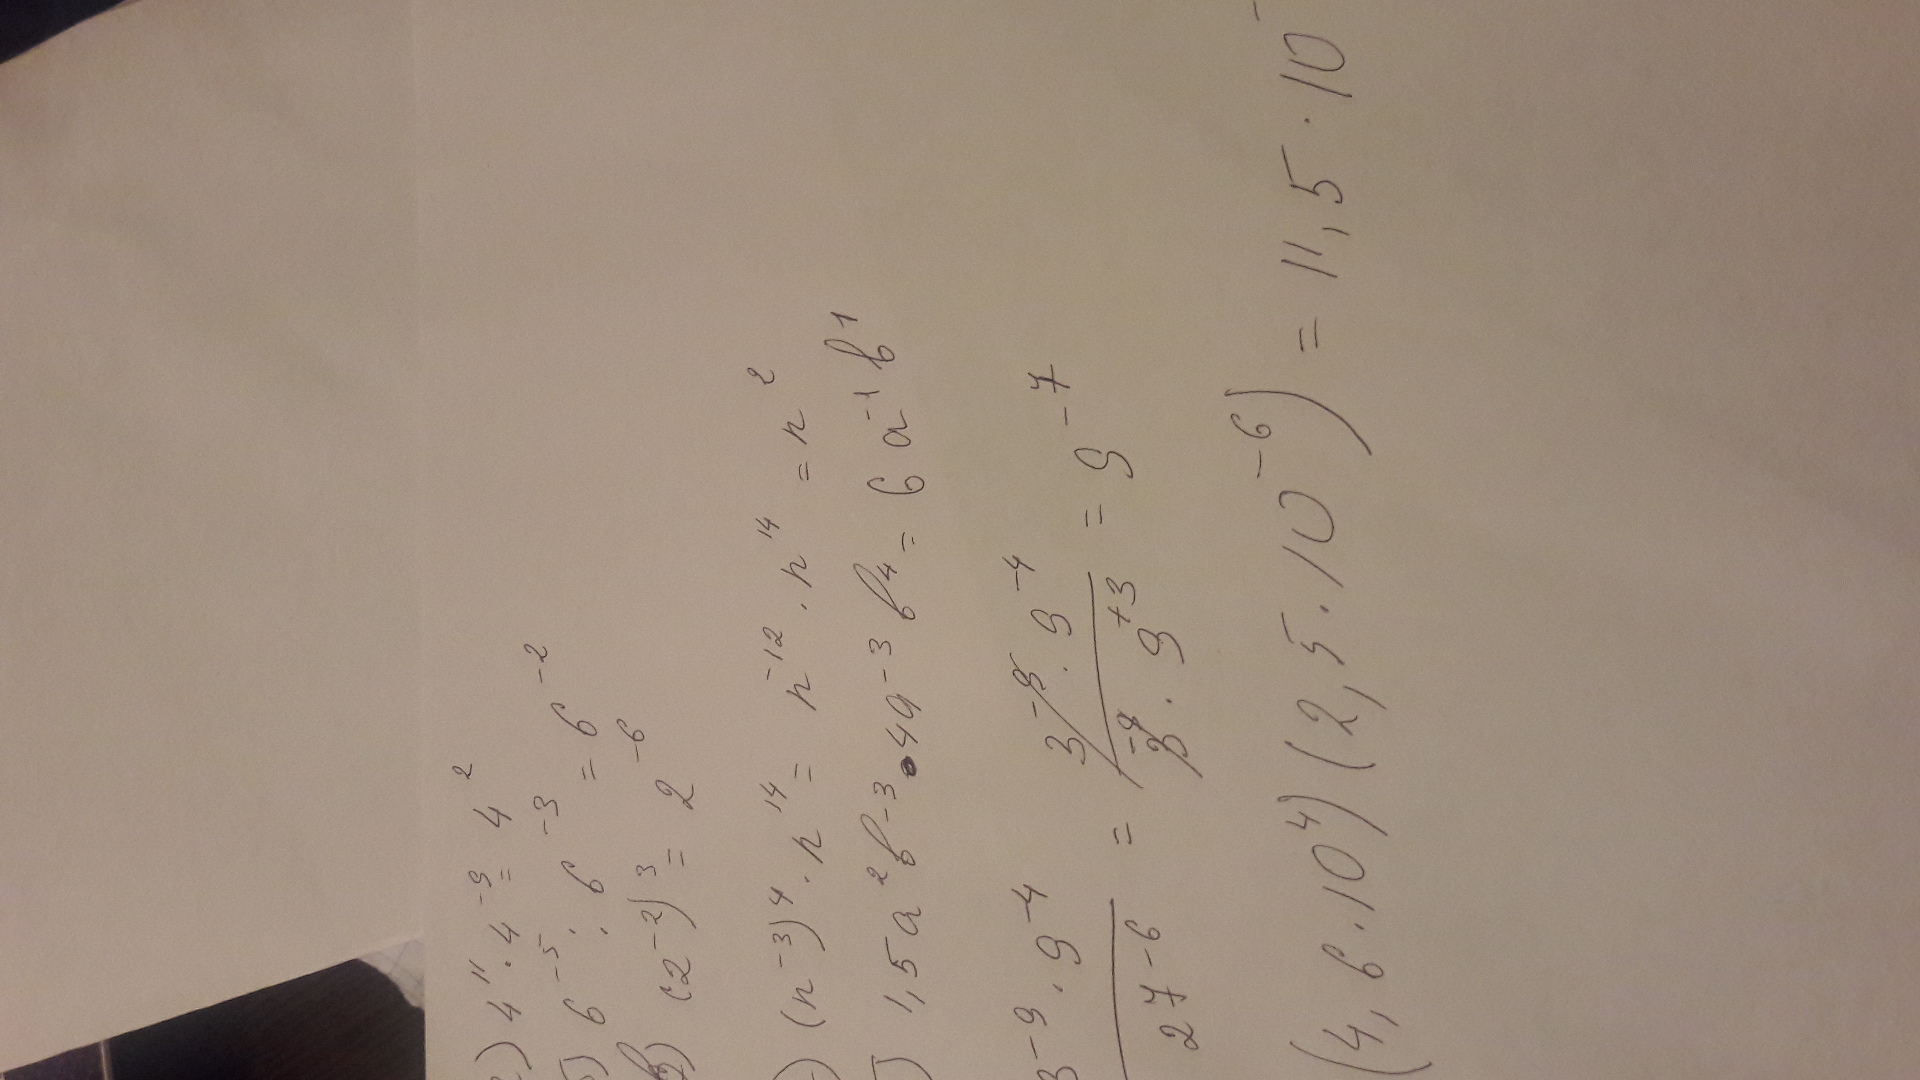 ) 4¹¹ · 4⁻⁹ = 4²
) 6⁻⁵ : 6⁻³ = 6⁻²
в) (2⁻²)³ = 2⁻⁶
) (n⁻³)⁴ · n¹⁴ = n⁻¹² · n¹⁴ = n²
) 1,5a²b⁻³ · 4a⁻³b⁴ = 6a⁻¹b¹
3⁻⁹ · 9⁻⁴ / 27⁻⁶ = 3⁻⁹ · 9⁻⁴ / 3⁻⁹ · 9⁺³ = 9⁻⁷
(4,6 · 10⁴)(2,5 · 10⁻⁶) = 11,5 · 10⁻